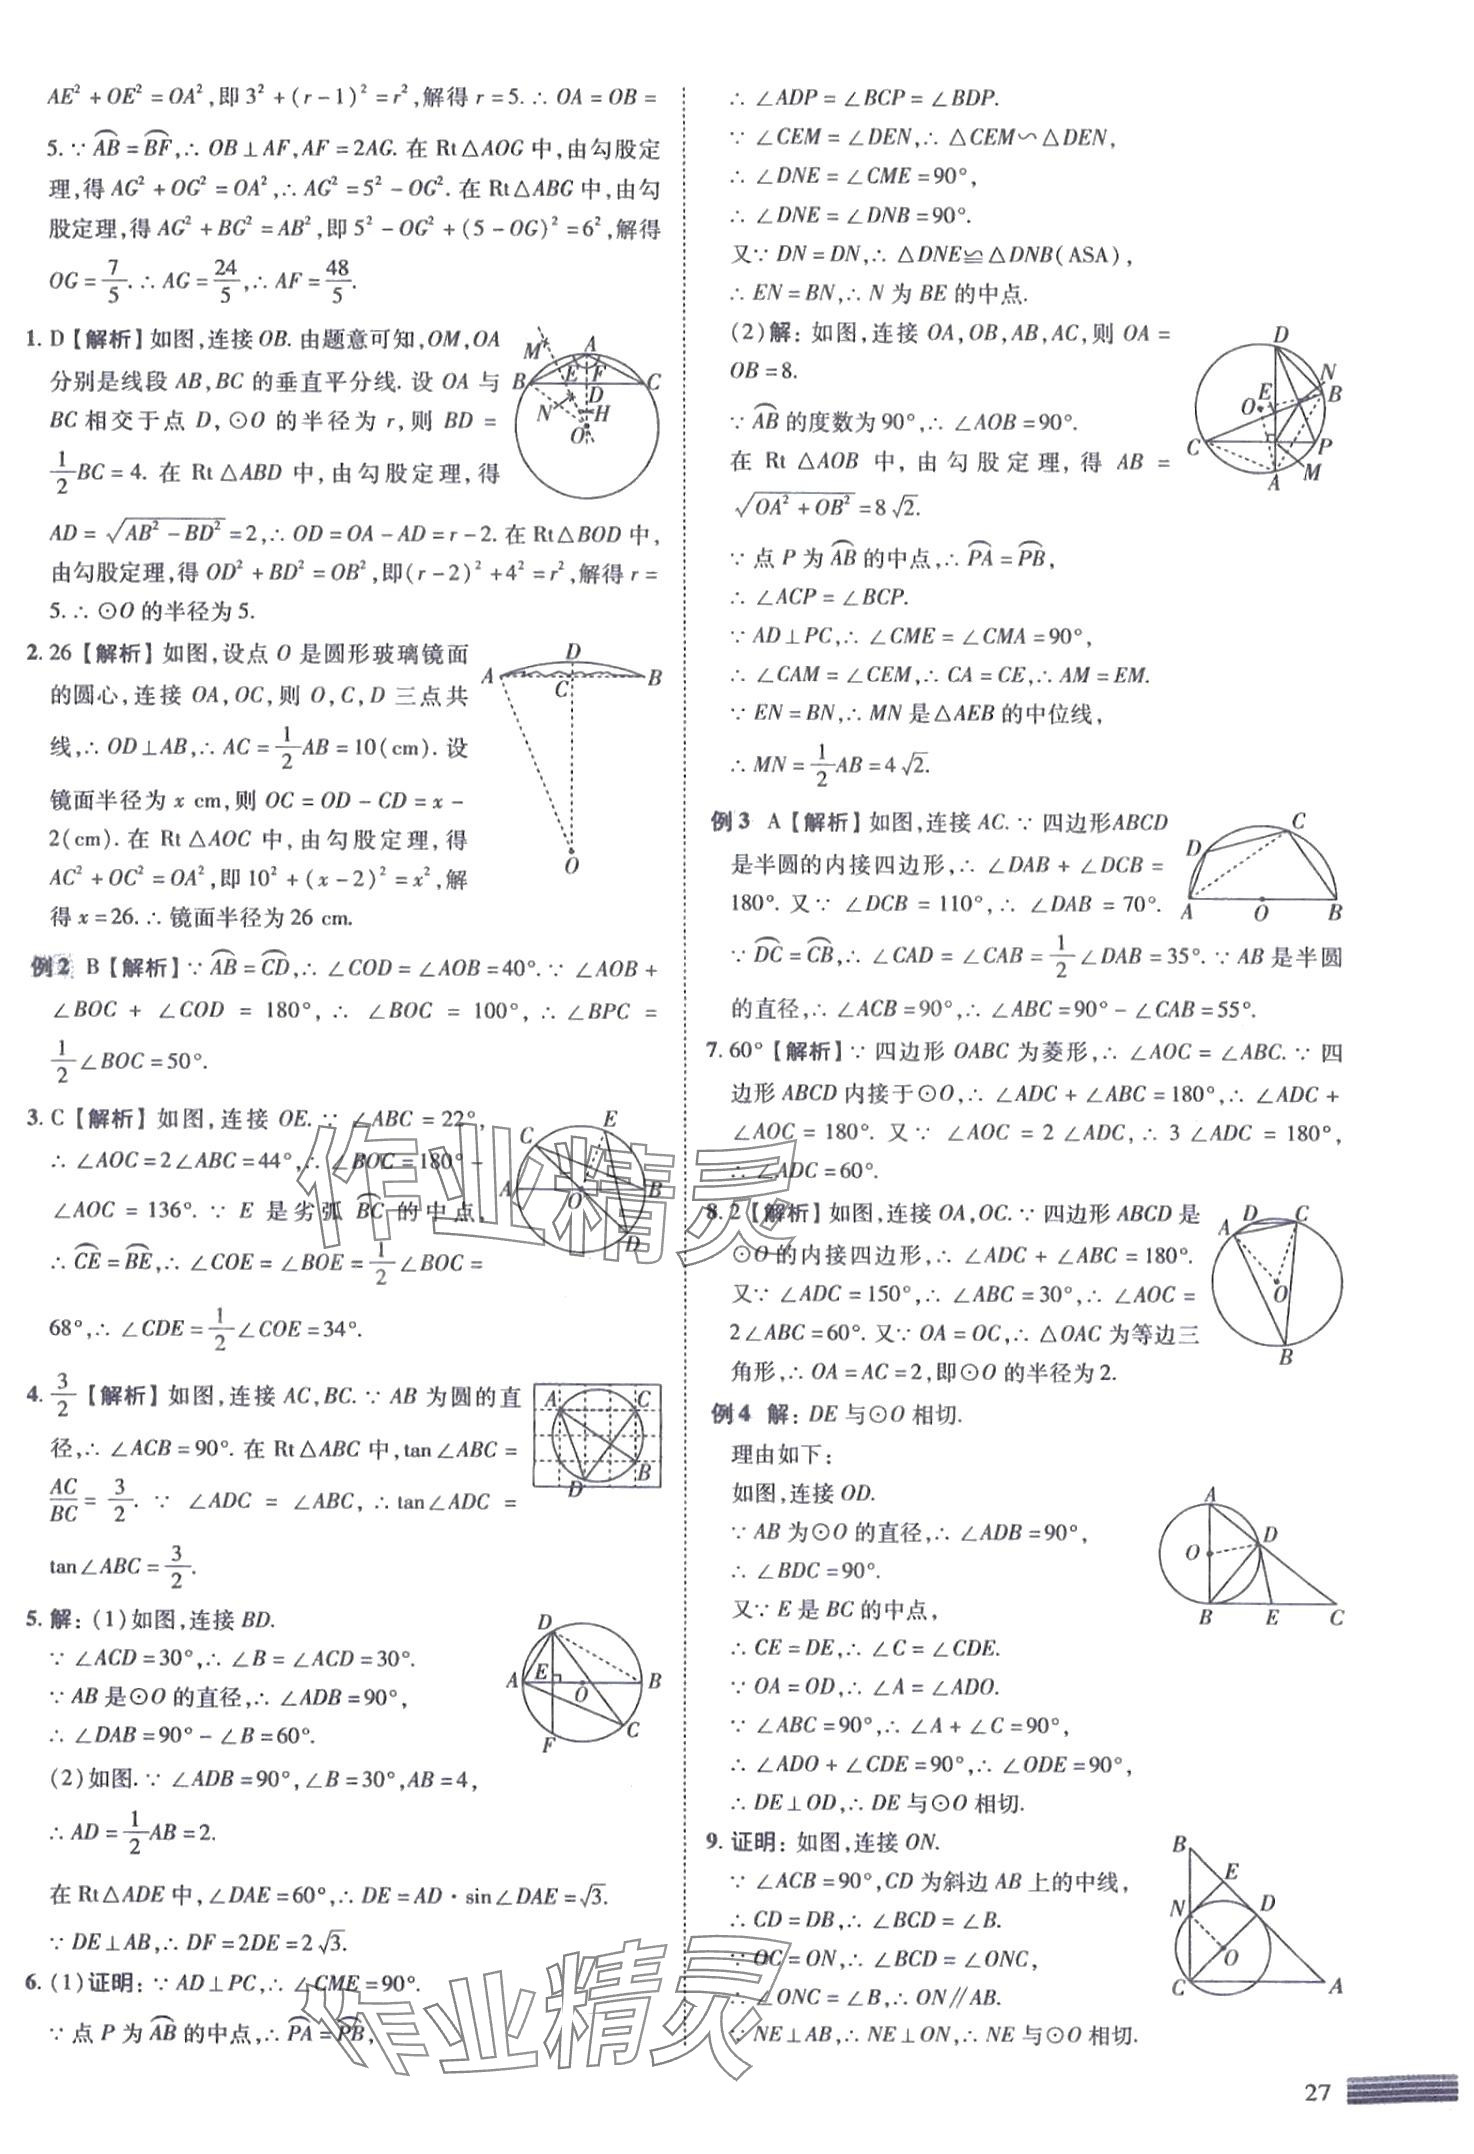 AE²+OE²=OA²,即3²+(r-1)²=r²,解得r=5.∴OA=OB=
5.∵AB⌢=BF⌢,∴OB⊥AF,AF=2AG.在Rt△AOG中,由勾股定
理,得AG²+OG²=OA²,∴AG²=5²-OG².在Rt△ABG中,由勾
股定理,得AG²+BG²=AB²,即5²-OG²+(5-OG)²=6²,解得
OG=7/5.∴AG=24/5,∴AF=48/5.
1.D【解析】如图,连接OB.由题意可知,OM,OA
分别是线段AB,BC的垂直平分线.设OA与
BC相交于点D,⊙O的半径为r,则BD=
1/2BC=4.在Rt△ABD中,由勾股定理,得
AD=√(AB²-BD²)=2,∴OD=OA-AD=r-2.在Rt△BOD中,
由勾股定理,得OD²+BD²=OB²,即(r-2)²+4²=r²,解得r=
5.∴⊙O的半径为5.
M A B E F C D N H O
2.26【解析】如图,设点O是圆形玻璃镜面
的圆心,连接OA,OC,则O,C,D三点共
线,∴OD⊥AB,∴AC=1/2AB=10(cm).设
镜面半径为x cm,则OC=OD-CD=x-
2(cm).在Rt△AOC中,由勾股定理,得
AC²+OC²=OA²,即10²+(x-2)²=x²,解
得x=26.∴镜面半径为26 cm.
D A C B O
例2 B【解析】∵AB⌢=CD⌢,∴∠COD=∠AOB=40°.∵∠AOB+
∠BOC+∠COD=180°,∴∠BOC=100°,∴∠BPC=
1/2∠BOC=50°.
3.C【解析】如图,连接OE.∵∠ABC=22°,
∴∠AOC=2∠ABC=44°,∴∠BOC=180°-
∠AOC=136°.∵E是劣弧BC⌢的中点,
∴CE⌢=BE⌢,∴∠COE=∠BOE=1/2∠BOC=
68°,∴∠CDE=1/2∠COE=34°.
C E A O B D
4.3/2【解析】如图,连接AC,BC.∵AB为圆的直
径,∴∠ACB=90°.在Rt△ABC中,tan∠ABC=
AC/BC=3/2.∵∠ADC=∠ABC,∴tan∠ADC=
tan∠ABC=3/2.
A C B D
5.解:(1)如图,连接BD.
∵∠ACD=30°,∴∠B=∠ACD=30°.
∵AB是⊙O的直径,∴∠ADB=90°,
∴∠DAB=90°-∠B=60°.
(2)如图.∵∠ADB=90°,∠B=30°,AB=4,
∴AD=1/2AB=2.
在Rt△ADE中,∠DAE=60°,∴DE=AD·sin∠DAE=√3.
∵DE⊥AB,∴DF=2DE=2√3.
D A E O B C F
6.(1)证明:∵AD⊥PC,∴∠CME=90°.
∵点P为AB⌢的中点,∴PA⌢=PB⌢,
∴∠ADP=∠BCP=∠BDP.
∵∠CEM=∠DEN,∴△CEM∽△DEN,
∴∠DNE=∠CME=90°,
∴∠DNE=∠DNB=90°.
又∵DN=DN,∴△DNE≌△DNB(ASA),
∴EN=BN,∴N为BE的中点.
(2)解:如图,连接OA,OB,AB,AC,则OA=
OB=8.
∵AB⌢的度数为90°,∴∠AOB=90°.
在Rt△AOB中,由勾股定理,得AB=
√(OA²+OB²)=8√2.
∵点P为AB⌢的中点,∴PA⌢=PB⌢,
∴∠ACP=∠BCP.
∵AD⊥PC,∴∠CME=∠CMA=90°,
∴∠CAM=∠CEM,∴CA=CE,∴AM=EM.
∵EN=BN,∴MN是△AEB的中位线,
∴MN=1/2AB=4√2.
D N E B O C P M A
例3 A【解析】如图,连接AC.∵四边形ABCD
是半圆的内接四边形,∴∠DAB+∠DCB=
180°.又∵∠DCB=110°,∴∠DAB=70°.
∵DC⌢=CB⌢,∴∠CAD=∠CAB=1/2∠DAB=35°.∵AB是半圆
的直径,∴∠ACB=90°,∴∠ABC=90°-∠CAB=55°.
C D A O B
7.60°【解析】∵四边形OABC为菱形,∴∠AOC=∠ABC.∵四
边形ABCD内接于⊙O,∴∠ADC+∠ABC=180°,∴∠ADC+
∠AOC=180°.又∵∠AOC=2∠ADC,∴3∠ADC=180°,
∴∠ADC=60°.
8.2【解析】如图,连接OA,OC.∵四边形ABCD是
⊙O的内接四边形,∴∠ADC+∠ABC=180°.
又∵∠ADC=150°,∴∠ABC=30°,∴∠AOC=
2∠ABC=60°.又∵OA=OC,∴△OAC为等边三
角形,∴OA=AC=2,即⊙O的半径为2.
A D C O B
例4 解:DE与⊙O相切.
理由如下:
如图,连接OD.
∵AB为⊙O的直径,∴∠ADB=90°,
∴∠BDC=90°.
又∵E是BC的中点,
∴CE=DE,∴∠C=∠CDE.
∵OA=OD,∴∠A=∠ADO.
∵∠ABC=90°,∴∠A+∠C=90°,
∴∠ADO+∠CDE=90°,∴∠ODE=90°,
∴DE⊥OD,∴DE与⊙O相切.
A D O B E C
9.证明:如图,连接ON.
∵∠ACB=90°,CD为斜边AB上的中线,
∴CD=DB,∴∠BCD=∠B.
∵OC=ON,∴∠BCD=∠ONC,
∴∠ONC=∠B,∴ON∥AB.
∵NE⊥AB,∴NE⊥ON,∴NE与⊙O相切.
B E N D O C A
作业精灵
作业精灵
27